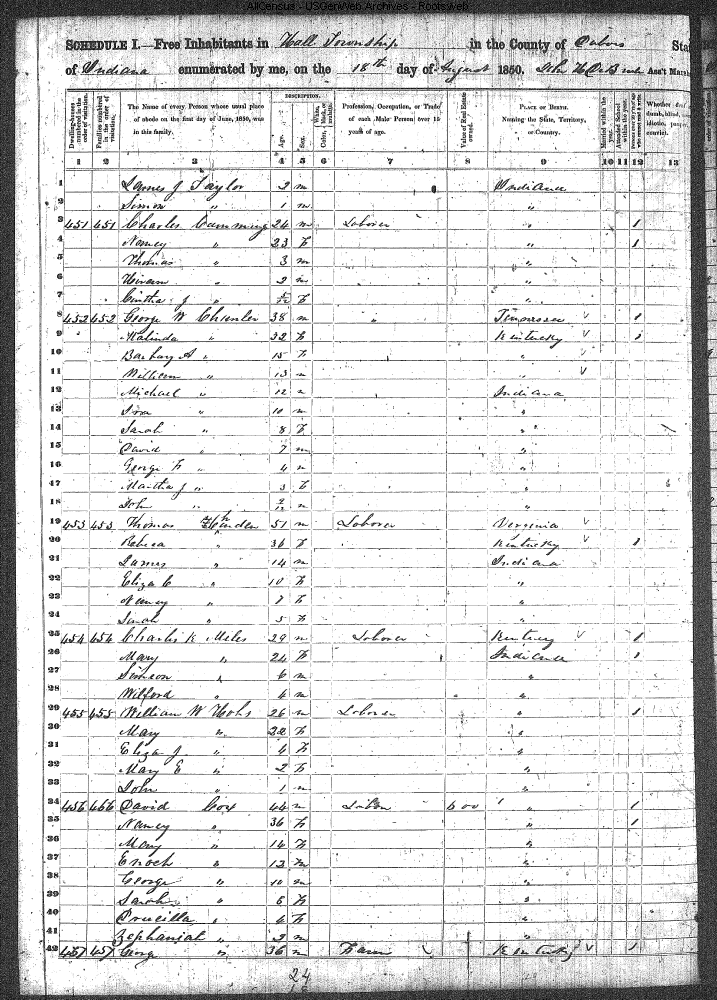 AllCensus - USGenWeb Archives - Rootsweb
SCHEDULE I.—Free Inhabitants in Hall Township in the County of Dubois Sta
of Indiana enumerated by me, on the 18th day of August 1850. Ass't Marsh
DESCRIPTION.
Dwelling-houses numbered in the order of visitation. Families numbered in the order of visitation. The Name of every Person whose usual place of abode on the first day of June, 1850, was in this family. Age. Sex. White, black, or mulatto. Color, Profession, Occupation, or Trade of each Male Person over 15 years of age. Value of Real Estate owned. PLACE OF BIRTH. Naming the State, Territory, or Country. Married within the year. Attended School within the year. Whether deaf dumb, blind, idiotic, convict.
1 2 3 4 5 6 7 8 9 10 11 12 13
1 James J Taylor 3 m Indiana
2 Simon " 1 m "
3 451 451 Charles Cumming 24 m Laborer " 1
4 Nancy " 23 f " 1
5 Thomas " 3 m "
6 Hiram " 2 m "
7 Cintha J " 5/12 f "
8 452 452 George W 38 m " Tennessee 1
9 Malinda " 32 f Kentucky 1
10 Barbary A " 15 f "
11 William " 13 m "
12 Michael " 12 m Indiana
13 " 10 m "
14 Sarah " 8 f "
15 David " 7 m "
16 George " 4 m "
17 Martha J " 3 f "
18 John " 2/12 m "
19 453 453 Thomas 51 m Laborer Verginia
20 " 36 f Kentucky 1
21 James " 14 m Indiana
22 Eliza C " 10 f "
23 Nancy " 7 f "
24 Sarah " 5 f "
25 454 454 Charles K Miles 29 m Laborer Kentucky 1
26 Mary " 24 f Indiana 1
27 " 6 m "
28 Wilford " 4 m "
29 455 455 William W 26 m Laborer " 1
30 Mary " 22 f "
31 Eliza J " 4 f "
32 Mary E " 2 f "
33 John " 1 m "
34 456 456 David Cox 44 m 600 " 1
35 Nancy " 36 f " 1
36 Mary " 14 f "
37 Enoch " 12 m "
38 George " 10 m "
39 Sarah " 6 f "
40 Drucilla " 4 f "
41 Zephaniah " 2 m "
42 457 457 George " 36 m Farm Kentucky 1
24